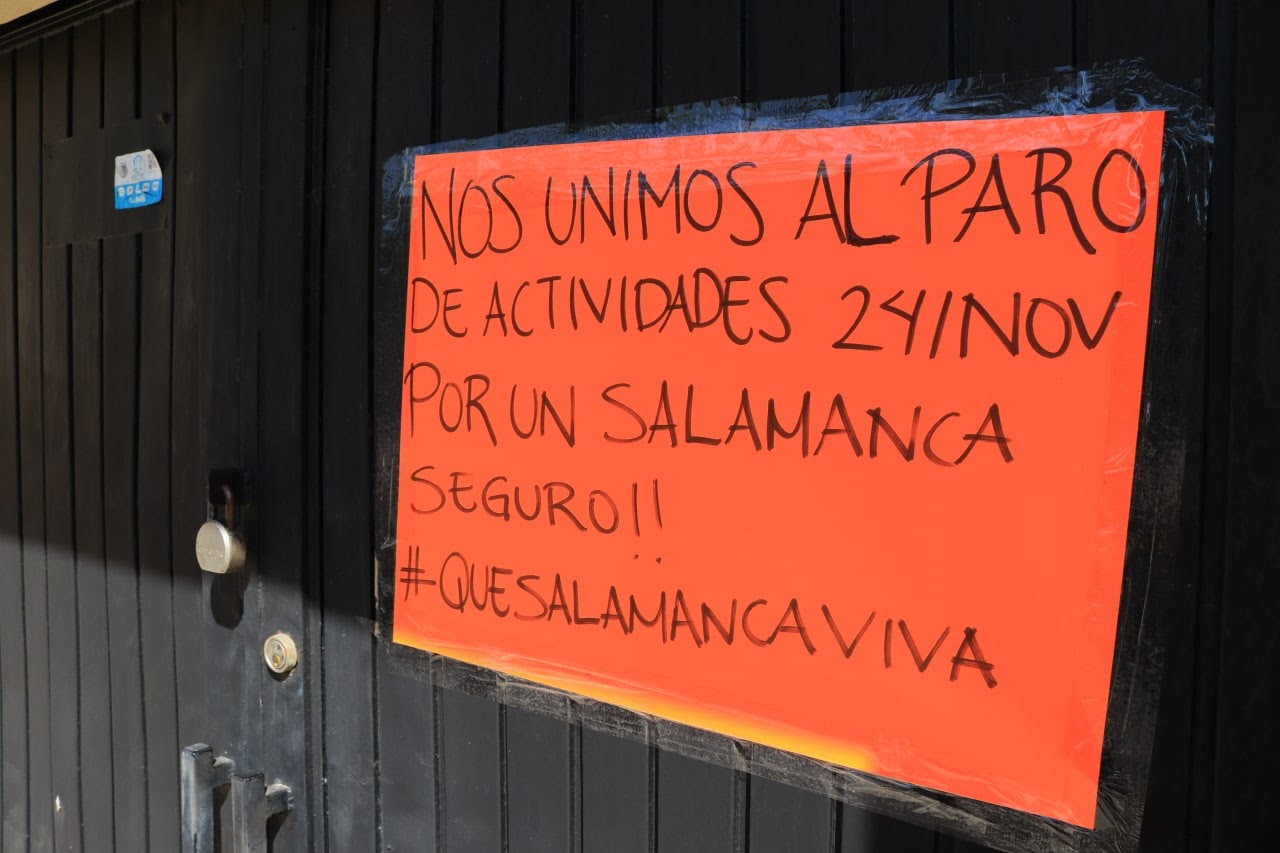 NOS UNIMOS AL PARO
DE ACTIVIDADES 24/NOV
POR UN SALAMANCA
SEGURO!!
#QUESALAMANCAVIVA